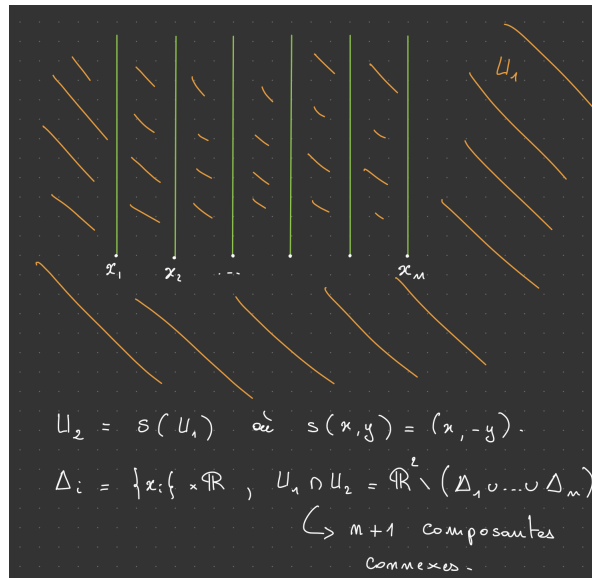 U₁
x₁ x₂ ... xₙ
U₂ = s(U₁) où s(x,y) = (x,-y).
Δᵢ = {xᵢ} × ℝ, U₁ ∩ U₂ = ℝ² \ (Δ₁ ∪ ... ∪ Δₙ)
↳ n+1 composantes
connexes.